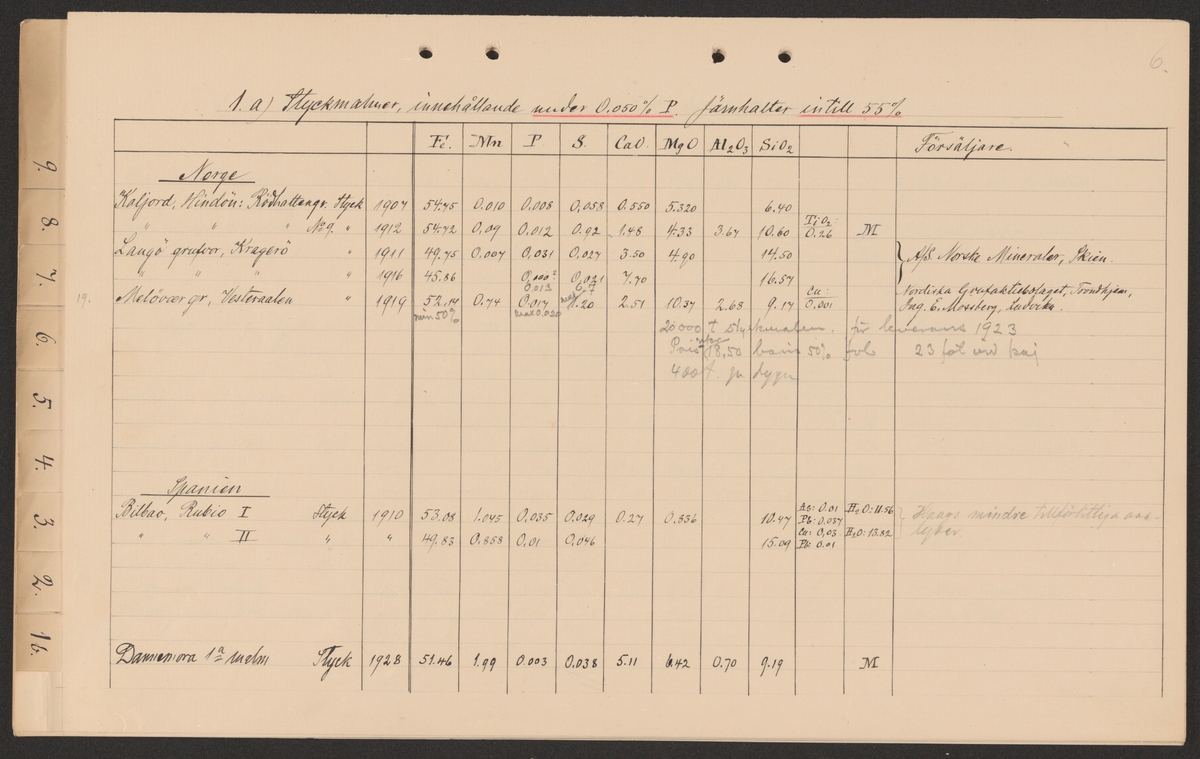 6.
1. a) Styckmalmer, innehållande under 0.050% P. Järnhalter intill 55%
Fe. Mn P S. CaO. MgO Al2O3 SiO2 Försäljare.
Norge
Kaljord, Hindön: Rödhattengr. Styck 1907 54.75 0.010 0.008 0.058 0.550 5.320 6.40
" " " No 9. " 1912 54.72 0.09 0.012 0.92 1.48 4.33 3.67 10.60 TiO2: 0.26 M
Langö gruvor, Kragerö " 1911 49.75 0.007 0.031 0.027 3.50 4.90 14.50 } A/S. Norske Mineraler, Skien.
" " " " 1916 45.86 0.013 0.021 7.70 16.57
19. Melövær gr, Vesteraalen " 1919 52.14 0.74 0.017 0.20 2.51 10.37 2.68 9.17 Cu: 0.001 Nordiska Grufaktiebolaget, Trondhjem,
Ing. E. Mossberg, Ludvika.
min 50% max 0.020 max
20000 t styckmalm. för leverans 1923
Pris 18,50 basis 50% fob 23 fob vid kaj
400 t. pr dygn
Spanien
Bilbao, Rubio I Styck 1910 53.08 1.045 0.035 0.029 0.27 0.336 10.47 As: 0.01 Pb: 0.037 H2O: 11.56 } Haags mindre tillförlitliga ana-
" " II " " 49.83 0.858 0.01 0.046 15.09 Cu: 0.03 Pb: 0.01 H2O: 13.82 lyser.
Dannemora 1a malm Styck 1928 51.46 1.99 0.003 0.038 5.11 6.42 0.70 9.19 M
9.
8.
7.
6.
5.
4.
3.
2.
1b.